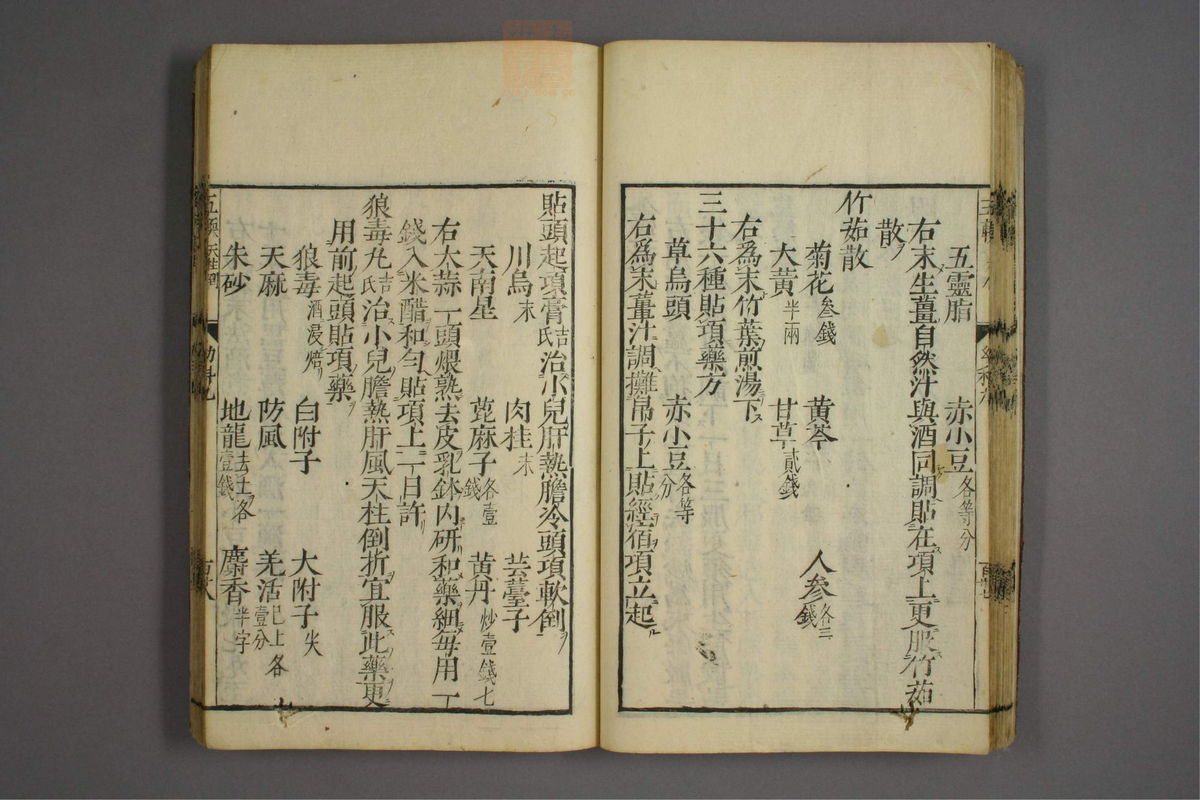 五靈脂 赤小豆各等分
右末生薑自然汁與酒同調貼在項上更服竹茹
散
竹茹散
菊花叁錢 黃芩 人參各三錢
大黃半兩 甘草貳錢
右爲末竹葉煎湯下ス
三十六種貼項藥方
草烏頭 赤小豆各等分
右爲末薑汁調攤帛子上貼經宿項立起ル
貼頭起項膏吉氏治小兒肝熱膽冷頭項軟倒ヲ
川烏末 肉桂末 芸薹子
天南星 蓖麻子各壹錢 黃丹炒壹錢七
右大蒜一丁頭煨熟去皮乳鉢内研和藥細每用一
錢入米醋和勻貼項上一日許
狼毒丸吉氏治小兒膽熱肝風天柱倒折宜服此藥更
用前起頭貼項藥ヲ
狼毒酒浸焙 白附子 大附子尖
天麻 防風 羌活已上各壹分
朱砂 地龍去土各壹錢 麝香半字